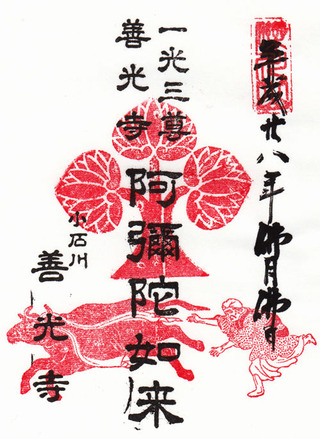 平成廿八年佛月佛日
一光三尊
善光寺
阿彌陀如来
小石川
善光寺